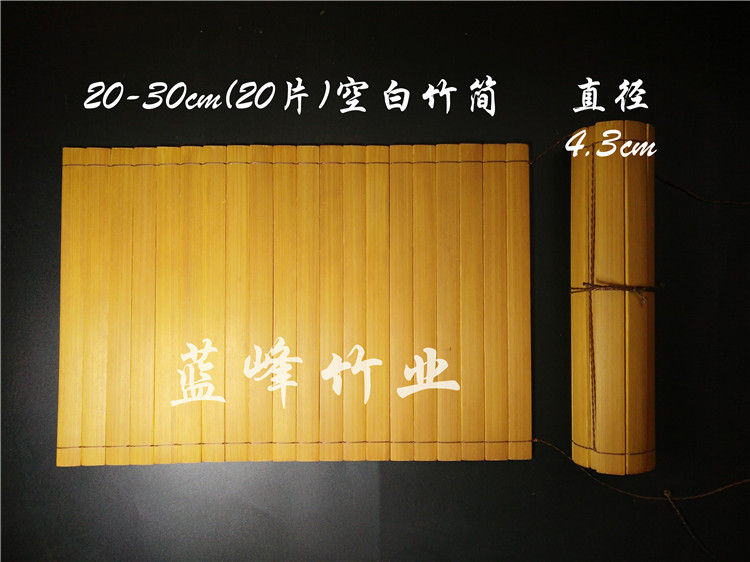 20-30cm(20片)空白竹简
直径
4.3cm
蓝峰竹业